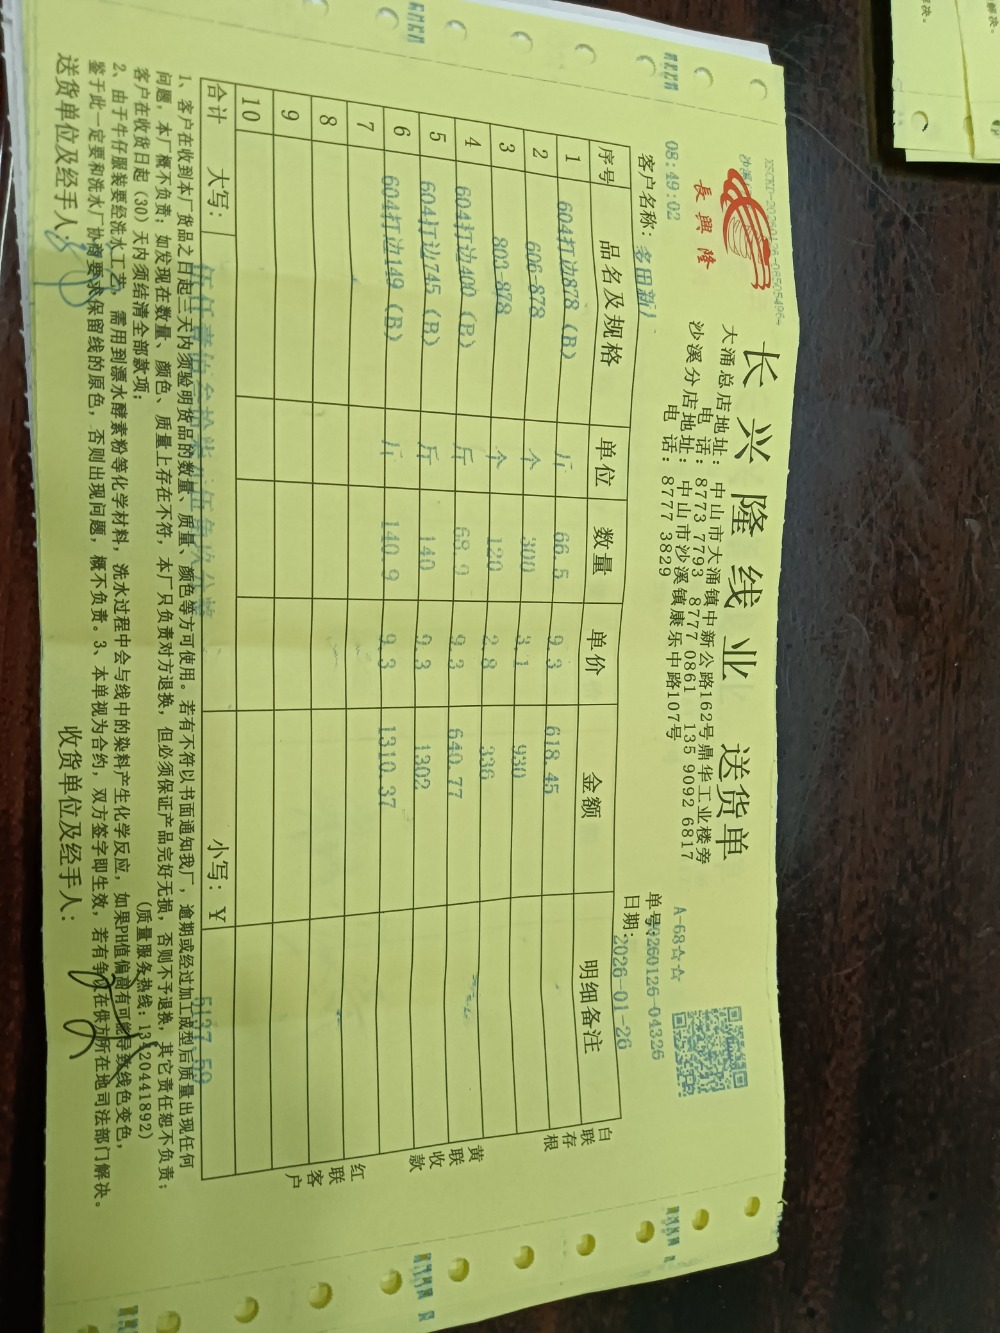 长兴隆线业 送货单
長興隆
大涌总店地址：中山市大涌镇中新公路162号鼎华工业楼旁
电话：8773 7793 8777 0861 135 9092 6817
沙溪分店地址：中山市沙溪镇康乐中路107号
电话：8777 3829
A-68☆☆
08:49:02
单号：20260126-04326
客户名称：
日期：2026-01-26
序号 品名及规格 单位 数量 单价 金额 明细备注
1 604打边878（B） 斤 66.5 9.3 618.45
2 606-878 个 300 3.1 930
3 803-878 个 120 2.8 336
4 604打边400（B） 斤 68.9 9.3 640.77
5 604打边745（B） 斤 140 9.3 1302
6 604打边149（B） 斤 140.9 9.3 1310.37
7
8
9
10
合计 大写：伍仟壹佰叁拾柒元伍角玖分整 小写：￥ 5137.59
白联存根
黄联收款
红联客户
1、客户在收到本厂货品之日起三天内须验明货品的数量、质量、颜色等方可使用。若有不符以书面通知我厂，逾期或经过加工成型后质量出现任何
问题，本厂概不负责；如发现在数量、颜色、质量上存在不符，本厂只负责对方退换，但必须保证产品完好无损，否则不予退换，其它责任恕不负责；
客户在收货日起（30）天内须结清全部款项； （质量服务热线：13420441892）
2、由于牛仔服装要经洗水工艺，需用到漂水酵素粉等化学材料，洗水过程中会与线中的染料产生化学反应，如果PH值偏高有可能导致线色变色，
鉴于此一定要和洗水厂协商要求保留线的原色，否则出现问题，概不负责。3、本单视为合约，双方签字即生效，若有争议在供方所在地司法部门解决。
送货单位及经手人： 收货单位及经手人：